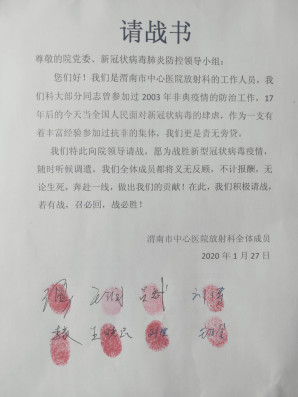 请战书
尊敬的院党委、新冠状病毒肺炎防控领导小组：
您们好！我们是渭南市中心医院放射科的工作人员，我
们科大部分同志曾参加过 2003 年非典疫情的防治工作，17
年后的今天当全国人民面对新冠状病毒的肆虐，作为一支有
着丰富经验参加过抗非的集体，我们更是责无旁贷。
我们特此向院领导请战，愿为战胜新型冠状病毒疫情，
随时听候调遣，我们全体成员都将义无反顾，不计报酬，无
论生死，奔赴一线，做出我们的贡献！在此，我们积极请战，
若有战，召必回，战必胜！
渭南市中心医院放射科全体成员
2020 年 1 月 27 日